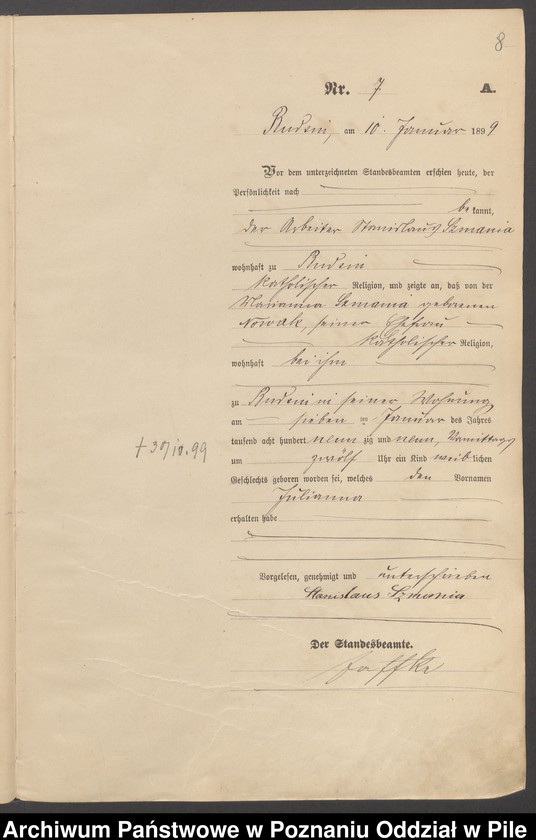 8
Nr. 7 A.
Rudsin, am 10. Januar 1899
Vor dem unterzeichneten Standesbeamten erschien heute, der
Persönlichkeit nach
be kannt,
der Arbeiter Stanislaus Szmania
wohnhaft zu Rudsin
katholischer Religion, und zeigte an, daß von der
Marianna Szmania geborenen
Nowak, seiner Ehefrau
katholischer Religion,
wohnhaft bei ihm
zu Rudsin in seiner Wohnung
am sieben ten Januar des Jahres
tausend acht hundert neun zig und neun, Vormittags
um zwölf Uhr ein Kind weib lichen
Geschlechts geboren worden sei, welches den Vornamen
Julianna
erhalten habe
Vorgelesen, genehmigt und unterschrieben
Stanislaus Szmania
Der Standesbeamte.
Jaffke
Archiwum Państwowe w Poznaniu Oddział w Pile